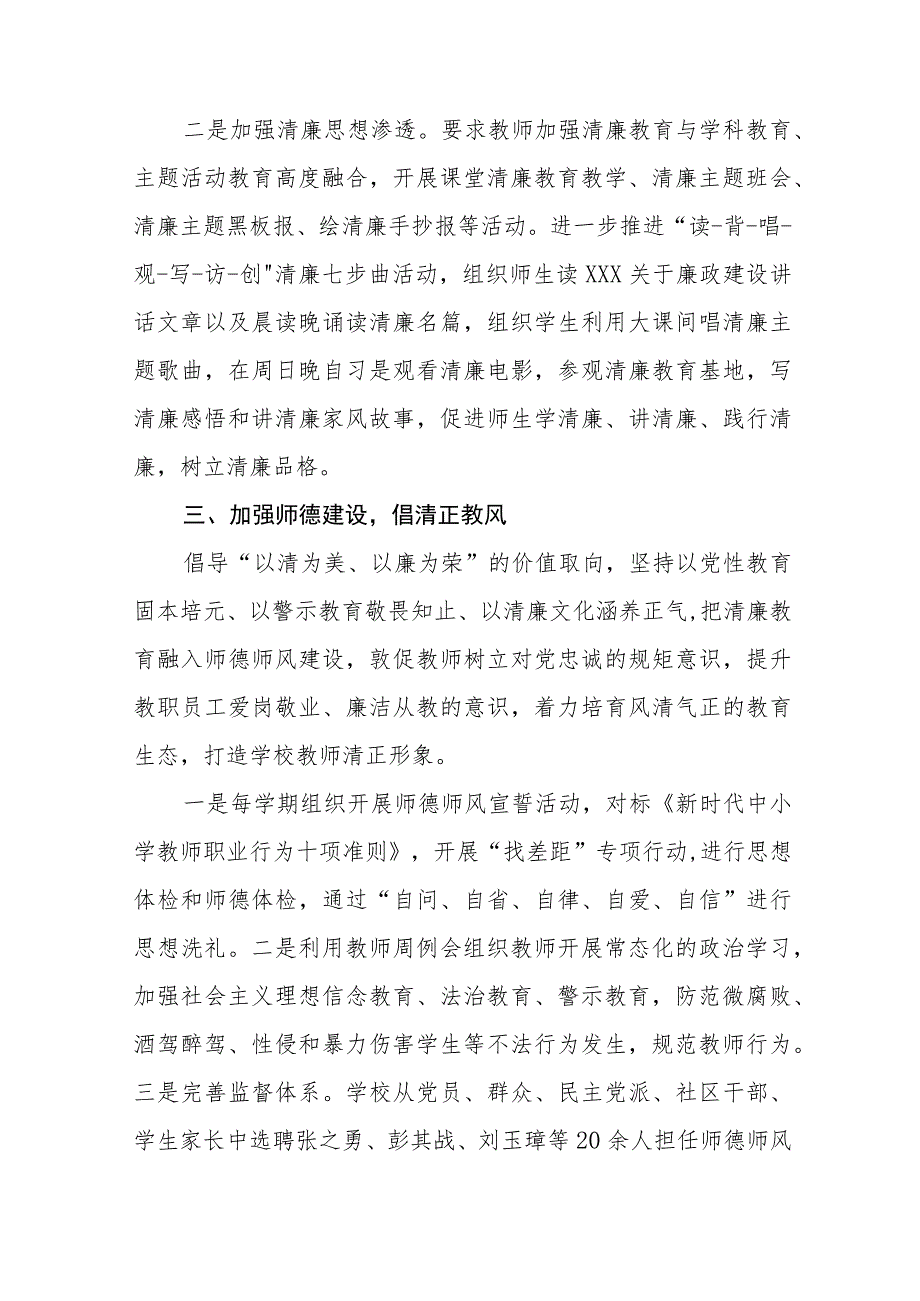 二是加强清廉思想渗透。要求教师加强清廉教育与学科教育、
主题活动教育高度融合，开展课堂清廉教育教学、清廉主题班会、
清廉主题黑板报、绘清廉手抄报等活动。进一步推进“读-背-唱-
观-写-访-创"清廉七步曲活动，组织师生读 XXX 关于廉政建设讲
话文章以及晨读晚诵读清廉名篇，组织学生利用大课间唱清廉主
题歌曲，在周日晚自习是观看清廉电影，参观清廉教育基地，写
清廉感悟和讲清廉家风故事，促进师生学清廉、讲清廉、践行清
廉，树立清廉品格。
三、加强师德建设，倡清正教风
倡导“以清为美、以廉为荣”的价值取向，坚持以党性教育
固本培元、以警示教育敬畏知止、以清廉文化涵养正气,把清廉教
育融入师德师风建设，敦促教师树立对党忠诚的规矩意识，提升
教职员工爱岗敬业、廉洁从教的意识，着力培育风清气正的教育
生态，打造学校教师清正形象。
一是每学期组织开展师德师风宣誓活动，对标《新时代中小
学教师职业行为十项准则》，开展“找差距”专项行动,进行思想
体检和师德体检，通过“自问、自省、自律、自爱、自信”进行
思想洗礼。二是利用教师周例会组织教师开展常态化的政治学习，
加强社会主义理想信念教育、法治教育、警示教育，防范微腐败、
酒驾醉驾、性侵和暴力伤害学生等不法行为发生，规范教师行为。
三是完善监督体系。学校从党员、群众、民主党派、社区干部、
学生家长中选聘张之勇、彭其战、刘玉璋等 20 余人担任师德师风